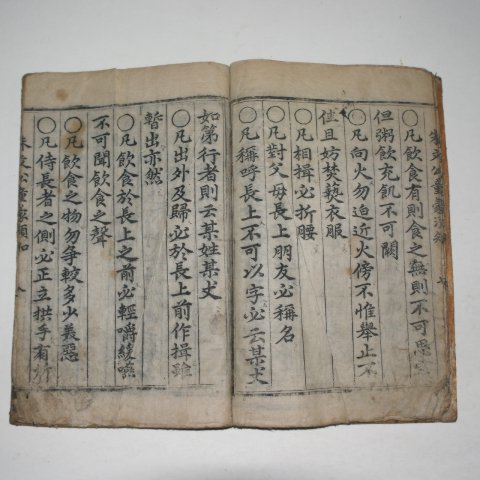 朱文公童蒙須知
○凡飲食有則食之無則不可思索
但粥飯充飢不可闕
○凡向火勿迫近火傍不惟舉止不
佳且妨焚爇衣服
○凡相揖必折腰
○凡對父母長上朋友必稱名
○凡稱呼長上不可以字必云某丈
如第行者則云某姓某丈
○凡出外及歸必於長上前作揖雖
暫出亦然
○凡飲食於長上之前必輕嚼緩嚥
不可聞飲食之聲
○凡飲食之物勿爭較多少美惡
○凡侍長者之側必正立拱手有所
朱文公童蒙須知